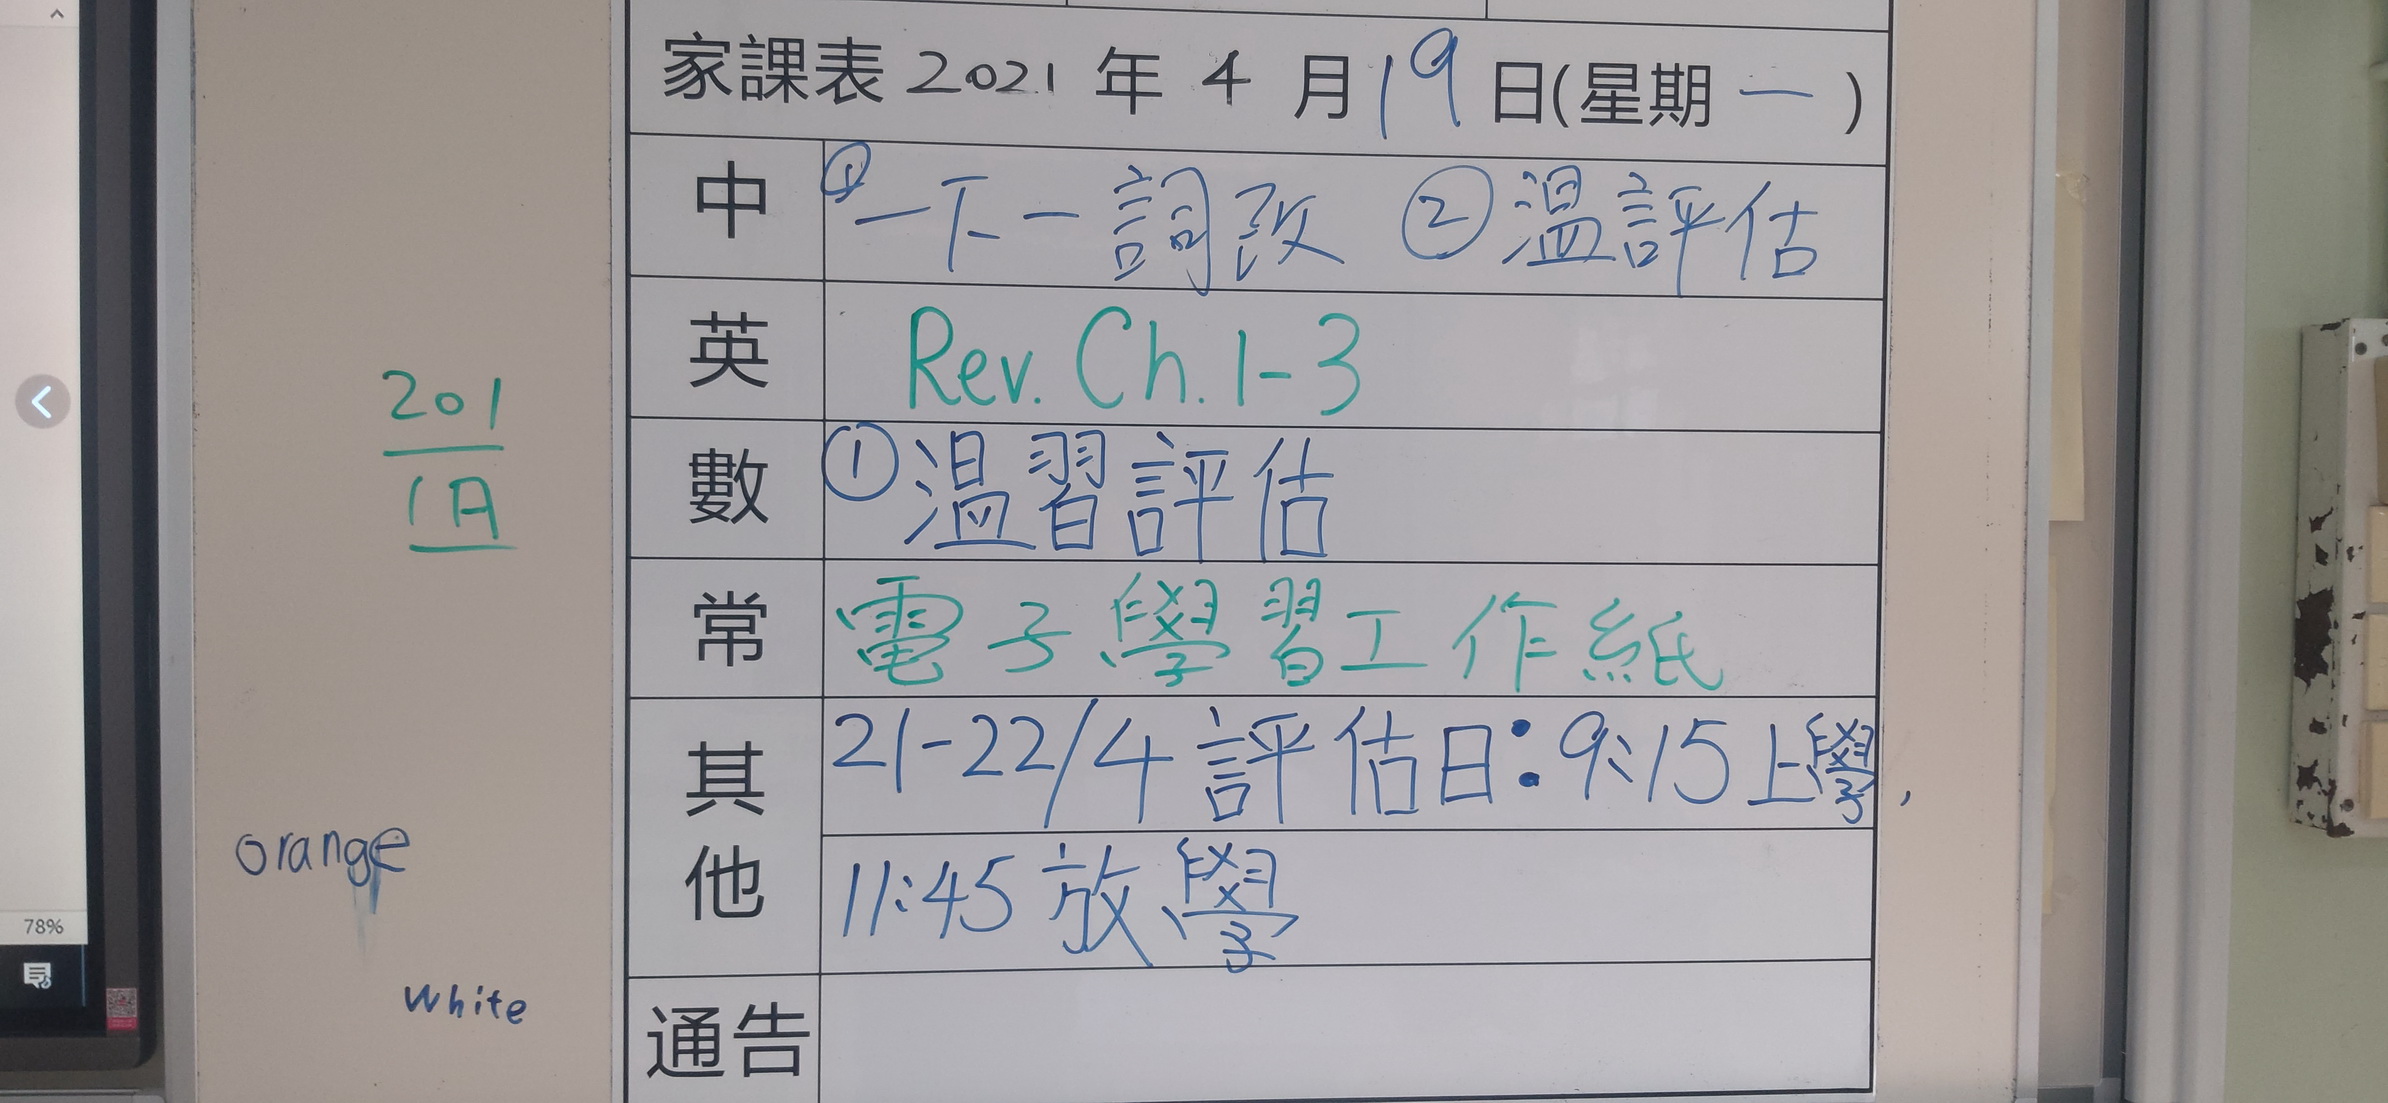 家課表 2021 年 4 月 19 日(星期 一 )
中 ① 一下一詞改 ② 溫評估
英 Rev. Ch. 1-3
數 ① 溫習評估
常 電子學習工作紙
其他 21-22/4 評估日: 9:15 上學,
11:45 放學
通告
201
1A
orange
white
78%